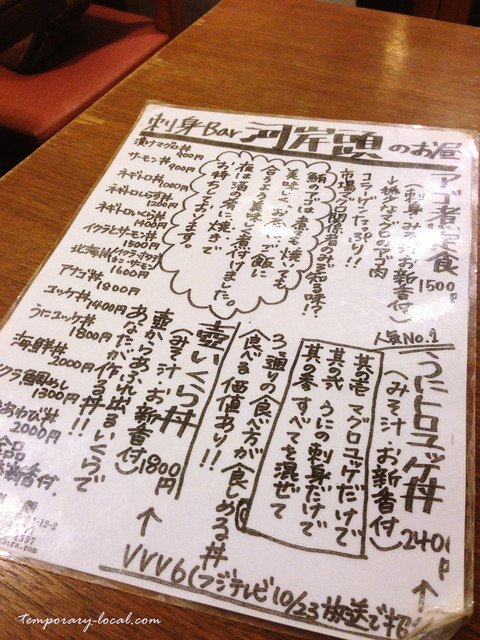 刺身Bar 河岸頭のお昼
漬けマグロ丼
900円
サーモン丼 900円
ネギトロ丼 900円
ネギトロしらす丼
1200円
ネギトロいくら丼
1400円
イクラとサーモン丼
1500円
北海丼
1600円
アナゴ丼 1800円
ユッケ丼 1400円
うにユッケ丼
1800円
海鮮丼
2000円
イクラ鯛めし
1300円
あわび丼
2000円
アゴ煮定食
1500円
(刺身・みそ汁・お新香付)
コラーゲンたっぷり!!
市場マグロ関係者のみぞ知る味?
鮪のアゴは煮ても焼いても
美味しく、お米・ご飯に
合うよう美味しく煮付けました。
夜は酒の肴に焼きで
お待ちしております。
人気No.1
うにトロユッケ丼
(みそ汁・お新香付)
2400
其の壱 マグロユッケだけで
其の弐 うにの刺身だけで
其の参 すべてを混ぜて
3つ通りの食べ方が楽しめる丼
食べる価値あり!!
壺いくら丼
(みそ汁・お新香付)
1800円
壺からあふれ出るいくらで
あなたが作る丼!!
VVV6(フジテレビ10/23放送で
temporary-local.com